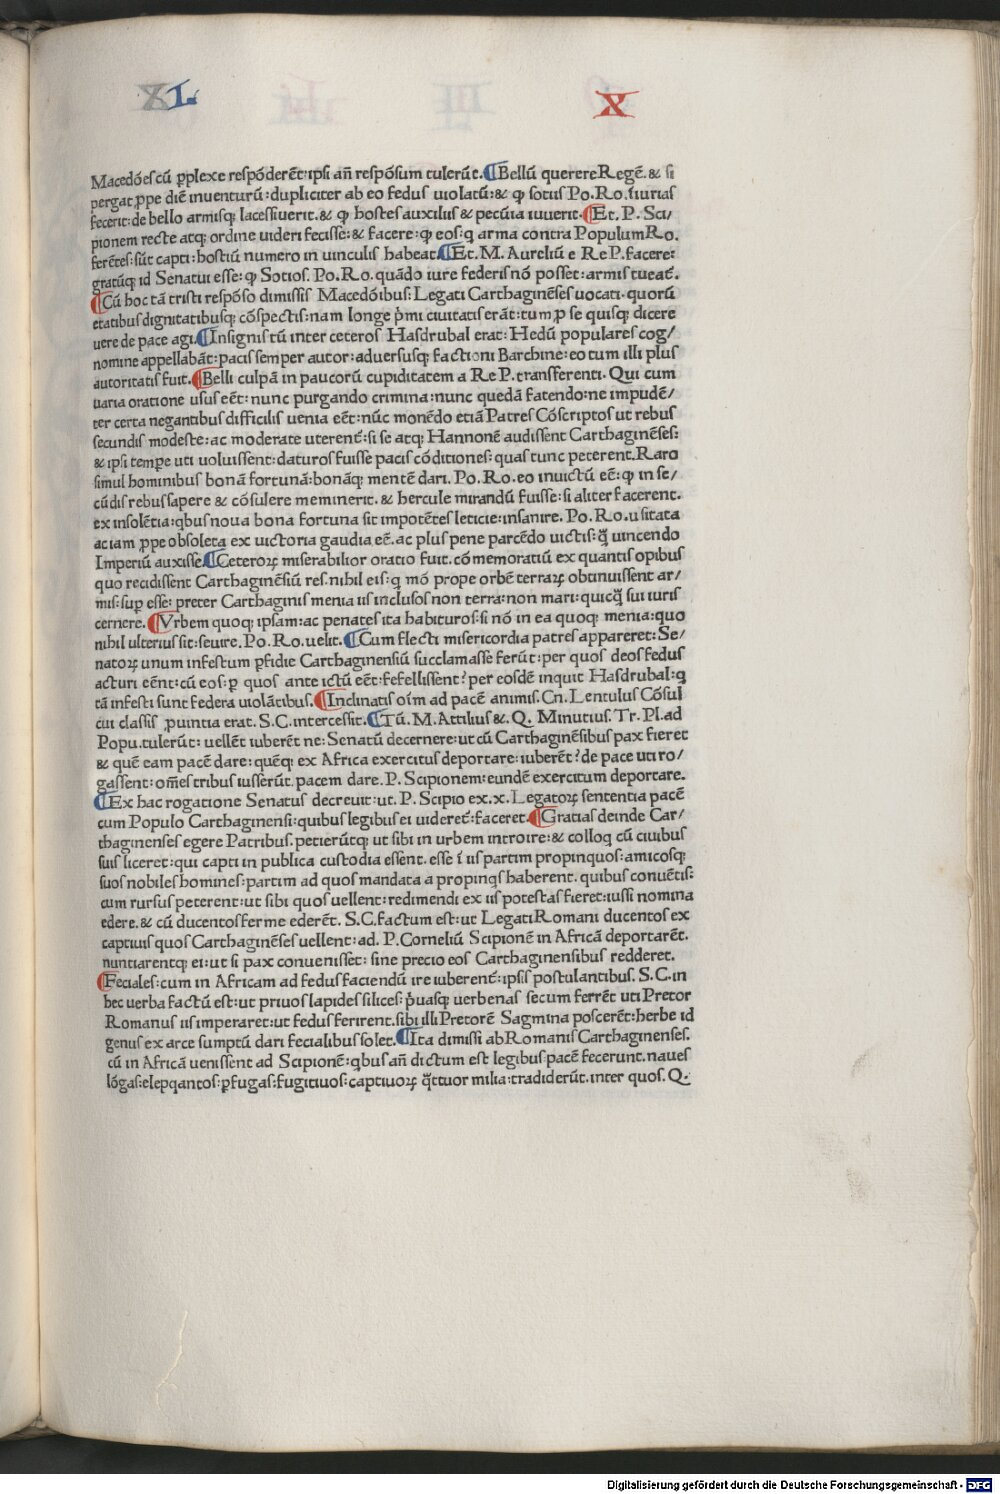 XL X
Macedōes cū ꝑplexe respōderēt: ipsi añ respōsum tulerūt. ¶Bellū querere Regē. & si
pergat ꝓpe diē inuenturū: dupliciter ab eo fedus uiolatū: & ꝙ sotiis Po. Ro. īiurias
fecerit: de bello armisq; lacessiuerit. & ꝙ hostes auxiliis & pecūia iuuerit. ¶Et. P. Sci/
pionem recte atq; ordine uideri fecisse: & facere: ꝙ eos: q arma contra Populum Ro.
ferētes: sūt capti: hostiū numero in uinculis habeat. ¶Et. M. Aureliū e Re P. facere:
gratūq; id Senatui esse: ꝙ Sotios. Po. Ro. quādo iure federis nō posset: armis tueat̄.
¶Cū hoc tā tristi respōso dimissis Macedōibus: Legati Carthaginēses uocati. quorū
etatibus dignitatibusq; cōspectis: nam longe p̄mi ciuitatis erāt: tum ꝓ se quisq; dicere
uere de pace agi. ¶Insignis tū inter ceteros Hasdrubal erat: Hedū populares cog/
nomine appellabāt: pacis semper autor: aduersusq; factioni Barchine: eo tum illi plus
autoritatis fuit. ¶Belli culpā in paucorū cupiditatem a Re P. transferenti. Qui cum
uaria oratione usus eēt: nunc purgando crimina: nunc quedā fatendo: ne impudē/
ter certa negantibus difficilis uenia eēt: nūc monēdo etiā Patres Cōscriptos ut rebus
secundis modeste: ac moderate uterent̄: si se atq; Hannonē audissent Carthaginēses:
& ipsi temꝑe uti uoluissent: daturos fuisse pacis cōditiones: quas tunc peterent. Raro
simul hominibus bonā fortunā: bonāq; mentē dari. Po. Ro. eo inuictū eē: ꝙ in se/
cūdis rebus sapere & cōsulere meminerit. & hercule mirandū fuisse: si aliter facerent.
ex insolētia: qbus noua bona fortuna sit impotētes leticie: insanire. Po. Ro. usitata
ac iam ꝓpe obsoleta ex uictoria gaudia eē. ac plus pene parcēdo uictis: q̄ uincendo
Imperiū auxisse. ¶Ceteroꝝ miserabilior oratio fuit. cōmemoratiū ex quantis opibus
quo recidissent Carthaginēsiū res. nihil eis: q mō prope orbē terraꝝ obtinuissent ar/
mis: suꝑ esse: preter Carthaginis menia iis inclusos non terra: non mari: quicq̄ sui iuris
cernere. ¶Vrbem quoq; ipsam: ac penates ita habituros: si nō in ea quoq; menia: quo
nihil ulterius sit: seuire. Po. Ro. uelit. ¶Cum flecti misericordia patres appareret: Se/
natoꝝ unum infestum ꝑfidie Carthaginensiū succlamasse ferūt: per quos deos fedus
acturi eēnt: cū eos: ꝑ quos ante ictū eēt: fefellissent? per eosdē inquit Hasdrubal: q
tā infesti sunt federa uiolātibus. ¶Inclinatis oīm ad pacē animis. Cn. Lentulus Cōsul
cui classis ꝓuintia erat. S. C. intercessit. ¶Tū. M. Attilius &. Q. Minutius. Tr. Pl. ad
Popu. tulerūt: uellēt iuberēt ne: Senatū decernere: ut cū Carthaginēsibus pax fieret
& quē eam pacē dare: quēq; ex Africa exercitus deportare: iuberēt? de pace uti ro/
gassent: om̄es tribus iusserūt. pacem dare. P. Scipionem: eundē exercitum deportare.
¶Ex hac rogatione Senatus decreuit: ut. P. Scipio ex. x. Legatoꝝ sententia pacē
cum Populo Carthaginensi: quibus legibus ei uideret̄: faceret. ¶Gratias deinde Car/
thaginenses egere Patribus. petierūtq; ut sibi in urbem introire: & colloq cū ciuibus
suis liceret: qui capti in publica custodia essent. esse ī iis partim propinquos: amicosq;
suos nobiles homines: partim ad quos mandata a propinqs haberent. quibus conuētis:
cum rursus peterent: ut sibi quos uellent: redimendi ex iis potestas fieret: iussi nomina
edere. & cū ducentos ferme ederēt. S. C. factum est: ut Legati Romani ducentos ex
captiuis quos Carthaginēses uellent: ad. P. Corneliū Scipionē in Africā deportarēt.
nuntiarentq; ei: ut si pax conuenisset: sine precio eos Carthaginensibus redderet.
¶Feciales: cum in Africam ad fedus faciendū ire iuberent̄: ipsis postulantibus. S. C. in
hec uerba factū est: ut priuos lapides silices: p̄uasq; uerbenas secum ferrēt uti Pretor
Romanus iis imperaret: ut fedus ferirent. sibi illi Pretorē Sagmina poscerēt: herbe id
genus ex arce sumptū dari fecialibus solet. ¶Ita dimissi ab Romanis Carthaginenses.
cū in Africā uenissent ad Scipionē: qbus añ dictum est legibus pacē fecerunt. naues
lōgas: elepqantos: ꝑfugas: fugitiuos: captiuoꝝ q̄ttuor milia: tradiderūt. inter quos. Q.
Digitalisierung gefördert durch die Deutsche Forschungsgemeinschaft - DFG